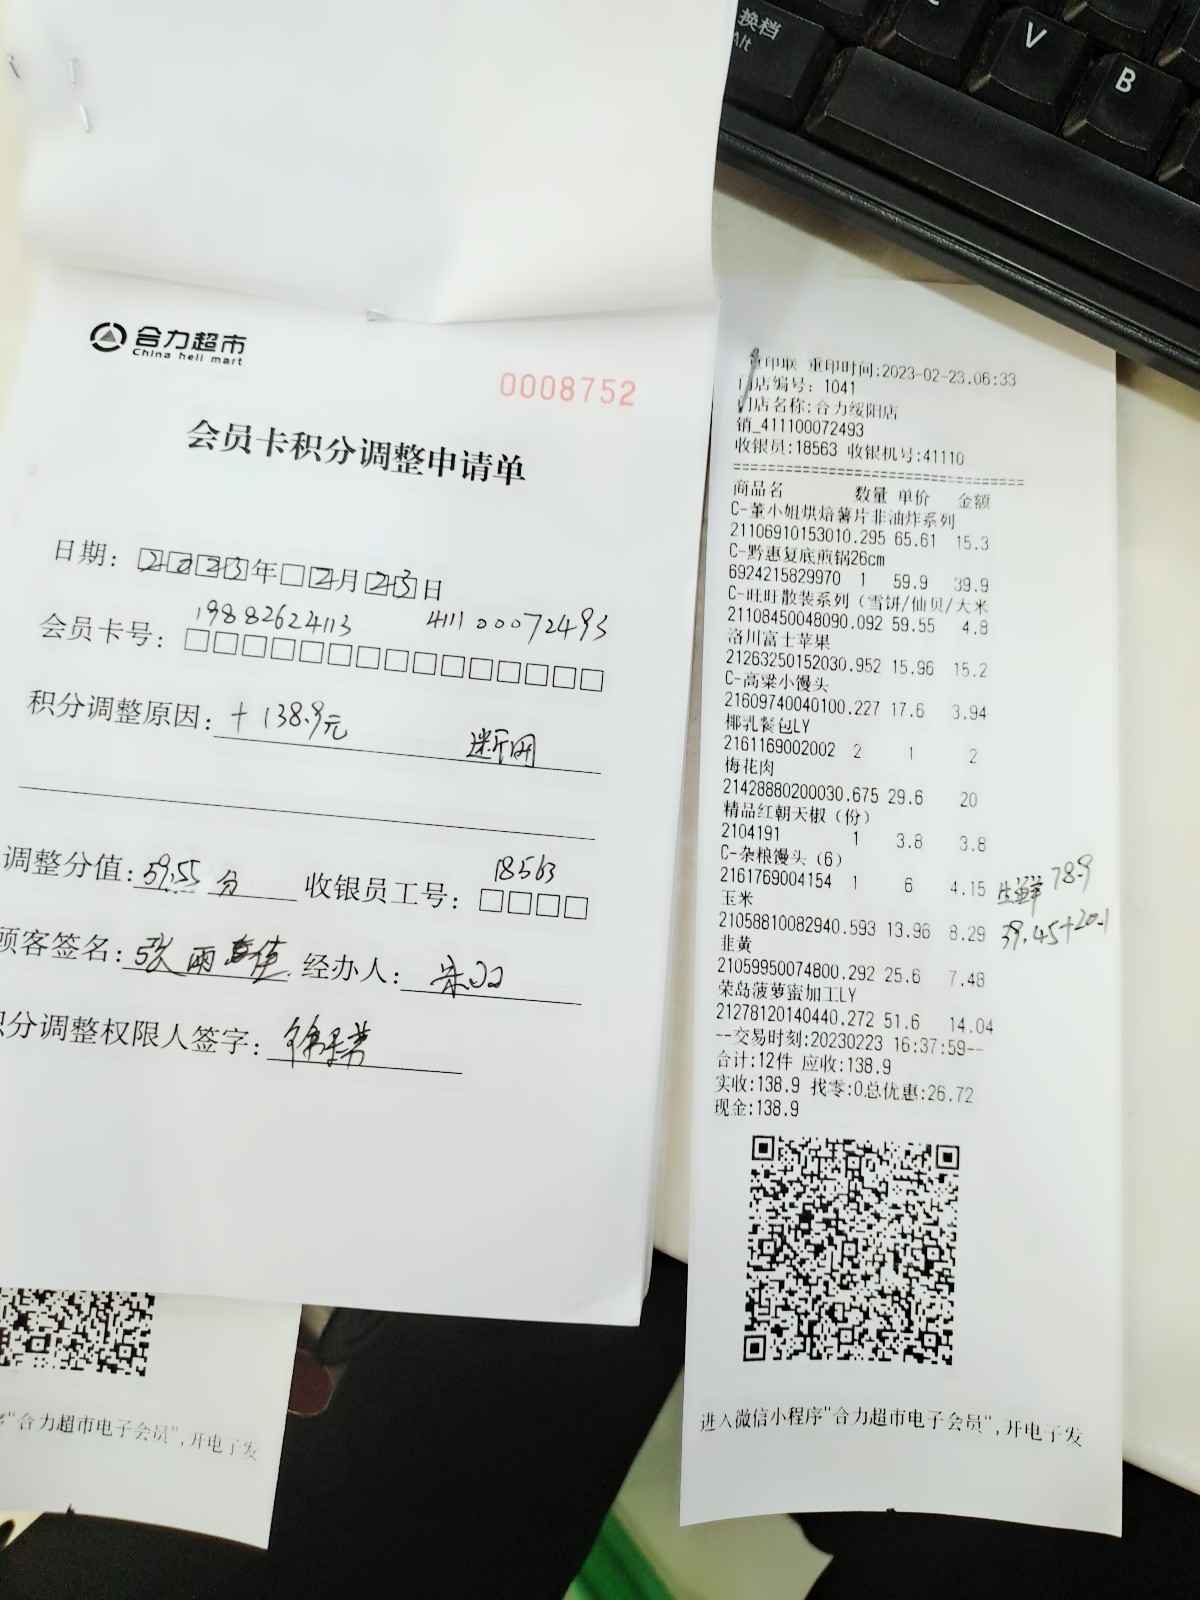 换档
Alt
V
B
合力超市
China heli mart
0008752
会员卡积分调整申请单
日期：2023年 2月23日
19882624113 411100072493
会员卡号：
积分调整原因：+138.9元 断网
调整分值：59.55分 收银员工号：18563
顾客签名：张雨 经办人：
积分调整权限人签字：
序"合力超市电子会员",开电子发
重印联 重印时间:2023-02-23.06:33
门店编号: 1041
门店名称:合力绥阳店
销_411100072493
收银员:18563 收银机号:41110
商品名 数量 单价 金额
C-董小姐烘焙薯片非油炸系列
21106910153010.295 65.61 15.3
C-黔惠复底煎锅26cm
6924215829970 1 59.9 39.9
C-旺旺散装系列（雪饼/仙贝/大米
21108450048090.092 59.55 4.8
洛川富士苹果
21263250152030.952 15.96 15.2
C-高粱小馒头
21609740040100.227 17.6 3.94
椰乳餐包LY
2161169002002 2 1 2
梅花肉
21428880200030.675 29.6 20
精品红朝天椒（份）
2104191 1 3.8 3.8
C-杂粮馒头（6）
2161769004154 1 6 4.15
生鲜 78.9
玉米
21058810082940.593 13.96 8.29
39.45+20.1
韭黄
21059950074800.292 25.6 7.48
荣岛菠萝蜜加工LY
21278120140440.272 51.6 14.04
--交易时刻:20230223 16:37:59--
合计:12件 应收:138.9
实收:138.9 找零:0总优惠:26.72
现金:138.9
进入微信小程序"合力超市电子会员",开电子发